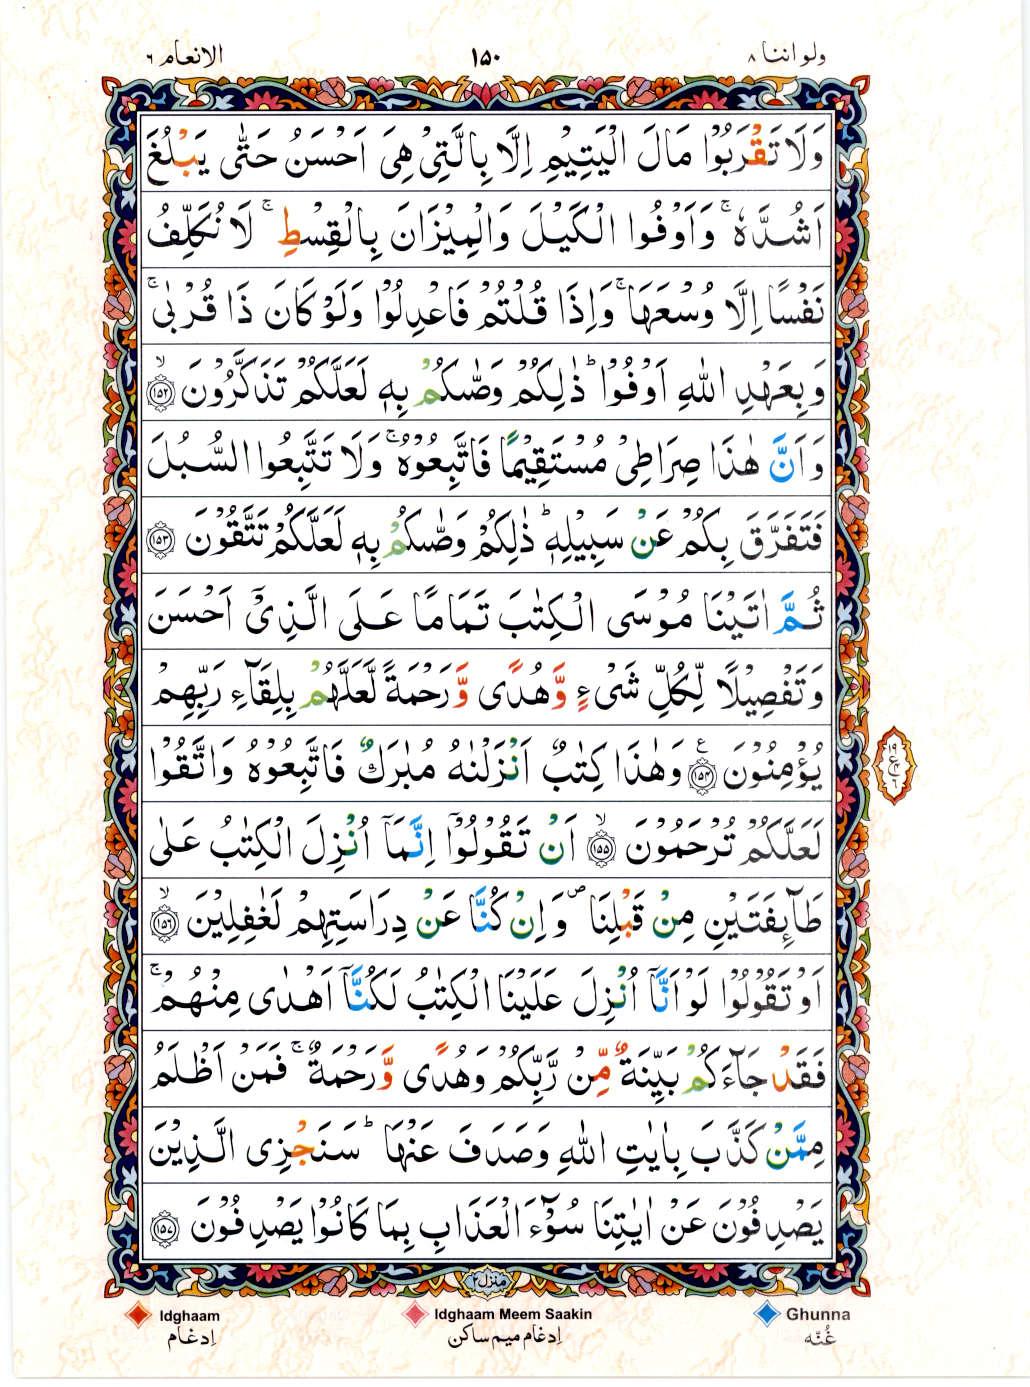 ولو اننا ۸
۱۵۰
الانعام ۶
وَلَا تَقْرَبُوْا مَالَ الْيَتِيْمِ اِلَّا بِالَّتِىْ هِىَ اَحْسَنُ حَتّٰى يَبْلُغَ
اَشُدَّهٗ ۚ وَاَوْفُوا الْكَيْلَ وَالْمِيْزَانَ بِالْقِسْطِ ۚ لَا نُكَلِّفُ
نَفْسًا اِلَّا وُسْعَهَا ۚ وَاِذَا قُلْتُمْ فَاعْدِلُوْا وَلَوْ كَانَ ذَا قُرْبٰى ۚ
وَبِعَهْدِ اللّٰهِ اَوْفُوْا ؕ ذٰلِكُمْ وَصّٰىكُمْ بِهٖ لَعَلَّكُمْ تَذَكَّرُوْنَ ۙ ﴿۱۵۲﴾
وَاَنَّ هٰذَا صِرَاطِىْ مُسْتَقِيْمًا فَاتَّبِعُوْهُ ۚ وَلَا تَتَّبِعُوا السُّبُلَ
فَتَفَرَّقَ بِكُمْ عَنْ سَبِيْلِهٖ ؕ ذٰلِكُمْ وَصّٰىكُمْ بِهٖ لَعَلَّكُمْ تَتَّقُوْنَ ﴿۱۵۳﴾
ثُمَّ اٰتَيْنَا مُوْسَى الْكِتٰبَ تَمَامًا عَلَى الَّذِىْۤ اَحْسَنَ
وَتَفْصِيْلًا لِّكُلِّ شَىْءٍ وَّهُدًى وَّرَحْمَةً لَّعَلَّهُمْ بِلِقَآءِ رَبِّهِمْ
يُؤْمِنُوْنَ ﴿۱۵۴﴾ ع وَهٰذَا كِتٰبٌ اَنْزَلْنٰهُ مُبٰرَكٌ فَاتَّبِعُوْهُ وَاتَّقُوْا
لَعَلَّكُمْ تُرْحَمُوْنَ ۙ ﴿۱۵۵﴾ اَنْ تَقُوْلُوْۤا اِنَّمَاۤ اُنْزِلَ الْكِتٰبُ عَلٰى
طَآئِفَتَيْنِ مِنْ قَبْلِنَا ۪ وَاِنْ كُنَّا عَنْ دِرَاسَتِهِمْ لَغٰفِلِيْنَ ۙ ﴿۱۵۶﴾
اَوْ تَقُوْلُوْا لَوْ اَنَّاۤ اُنْزِلَ عَلَيْنَا الْكِتٰبُ لَكُنَّاۤ اَهْدٰى مِنْهُمْ ۚ
فَقَدْ جَآءَكُمْ بَيِّنَةٌ مِّنْ رَّبِّكُمْ وَهُدًى وَّرَحْمَةٌ ۚ فَمَنْ اَظْلَمُ
مِمَّنْ كَذَّبَ بِاٰيٰتِ اللّٰهِ وَصَدَفَ عَنْهَا ؕ سَنَجْزِى الَّذِيْنَ
يَصْدِفُوْنَ عَنْ اٰيٰتِنَا سُوْٓءَ الْعَذَابِ بِمَا كَانُوْا يَصْدِفُوْنَ ﴿۱۵۷﴾
منزل ۲
Idghaam
Idghaam Meem Saakin
Ghunna
اِدغام
اِدغام میم ساکن
غُنّه